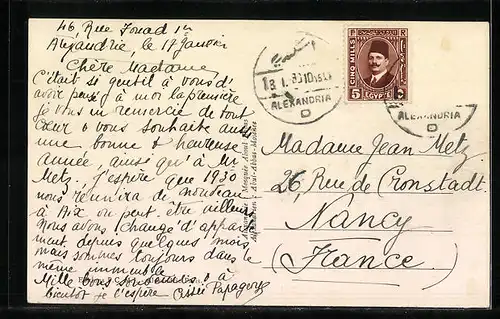 46, Rue Fouad 1er
Alexandrie, le 17 Janvier
Chère Madame
C'était si gentil à vous d'
avoir pensé à moi la première
je vous en remercie de tout
cœur & vous souhaite aussi
une bonne & heureuse
année, ainsi qu'à Mr
Metz. J'espère que 1930
nous réunira de nouveau
à Aix ou peut-être ailleurs
Nous avons changé d'appar
ment depuis quelques mois
mais sommes toujours dans le
même immeuble.
Mille bons souvenirs & à
bientôt je l'espère Papagory
Mosquée Aboul Abbas
Aboul-Abbas-Moschee
ALEXANDRIA
D
CINQ MILLS
5 EGYPTE
ALEXANDRIA
D
Madame Jean Metz
26, Rue de Cronstadt
Nancy
(France)